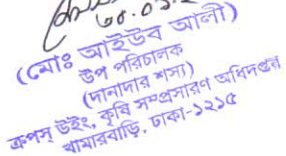 (মোঃ আইউব আলী)
উপ পরিচালক
(দানাদার শস্য)
ক্রপস্ উইং, কৃষি সম্প্রসারণ অধিদপ্তর
খামারবাড়ি, ঢাকা-১২১৫